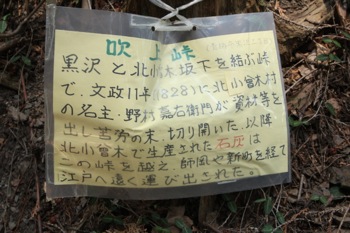 吹上峠
黒沢と北小曽木坂下を結ぶ峠
で、文政11年(1828)に北小曽木村
の名主・野村嘉右衛門が資材等を
出し苦労の末、切り開いた。以降
北小曽木で生産された石灰は
この峠を越え 師岡や新町を経て
江戸へ遠く運び出された。